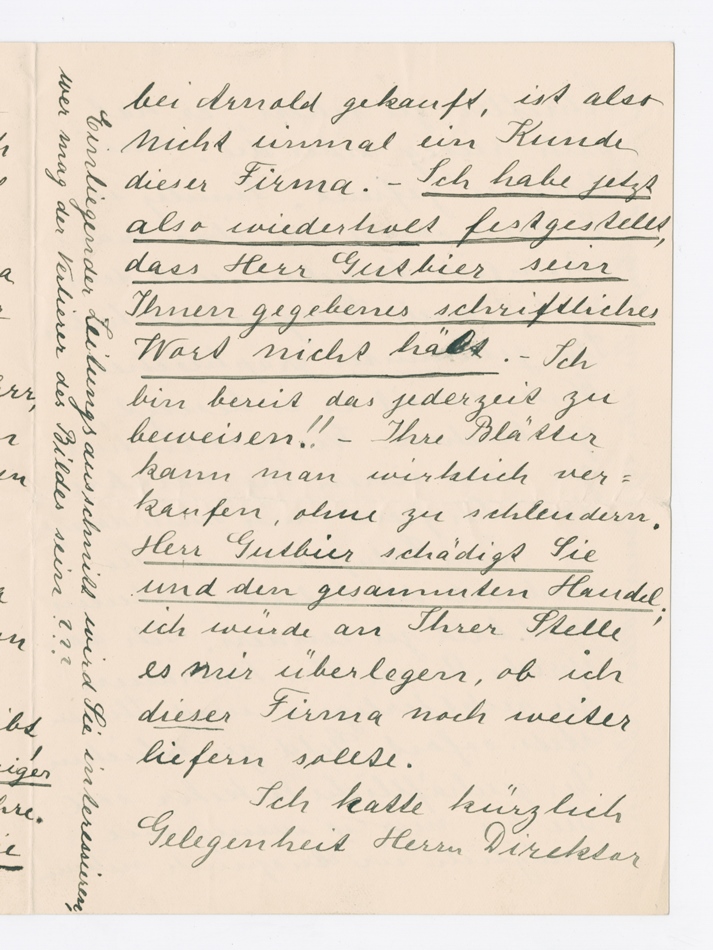 bei Arnold gekauft, ist also
nicht einmal ein Kunde
dieser Firma. – Ich habe jetzt
also wiederholt festgestellt,
dass Herr Gutbier sein
Ihnen gegebenes schriftliches
Wort nicht hält. – Ich
bin bereit das jederzeit zu
beweisen!! – Ihre Blätter
kann man wirklich ver=
kaufen, ohne zu schleudern.
Herr Gutbier schädigt Sie
und den gesammten Handel;
ich würde an Ihrer Stelle
es mir überlegen, ob ich
dieser Firma noch weiter
liefern sollte.
Ich hatte kürzlich
Gelegenheit Herrn Direktor
Einliegender Zeitungsausschnitt wird Sie interessieren,
wer mag der Verlierer des Bildes sein ???